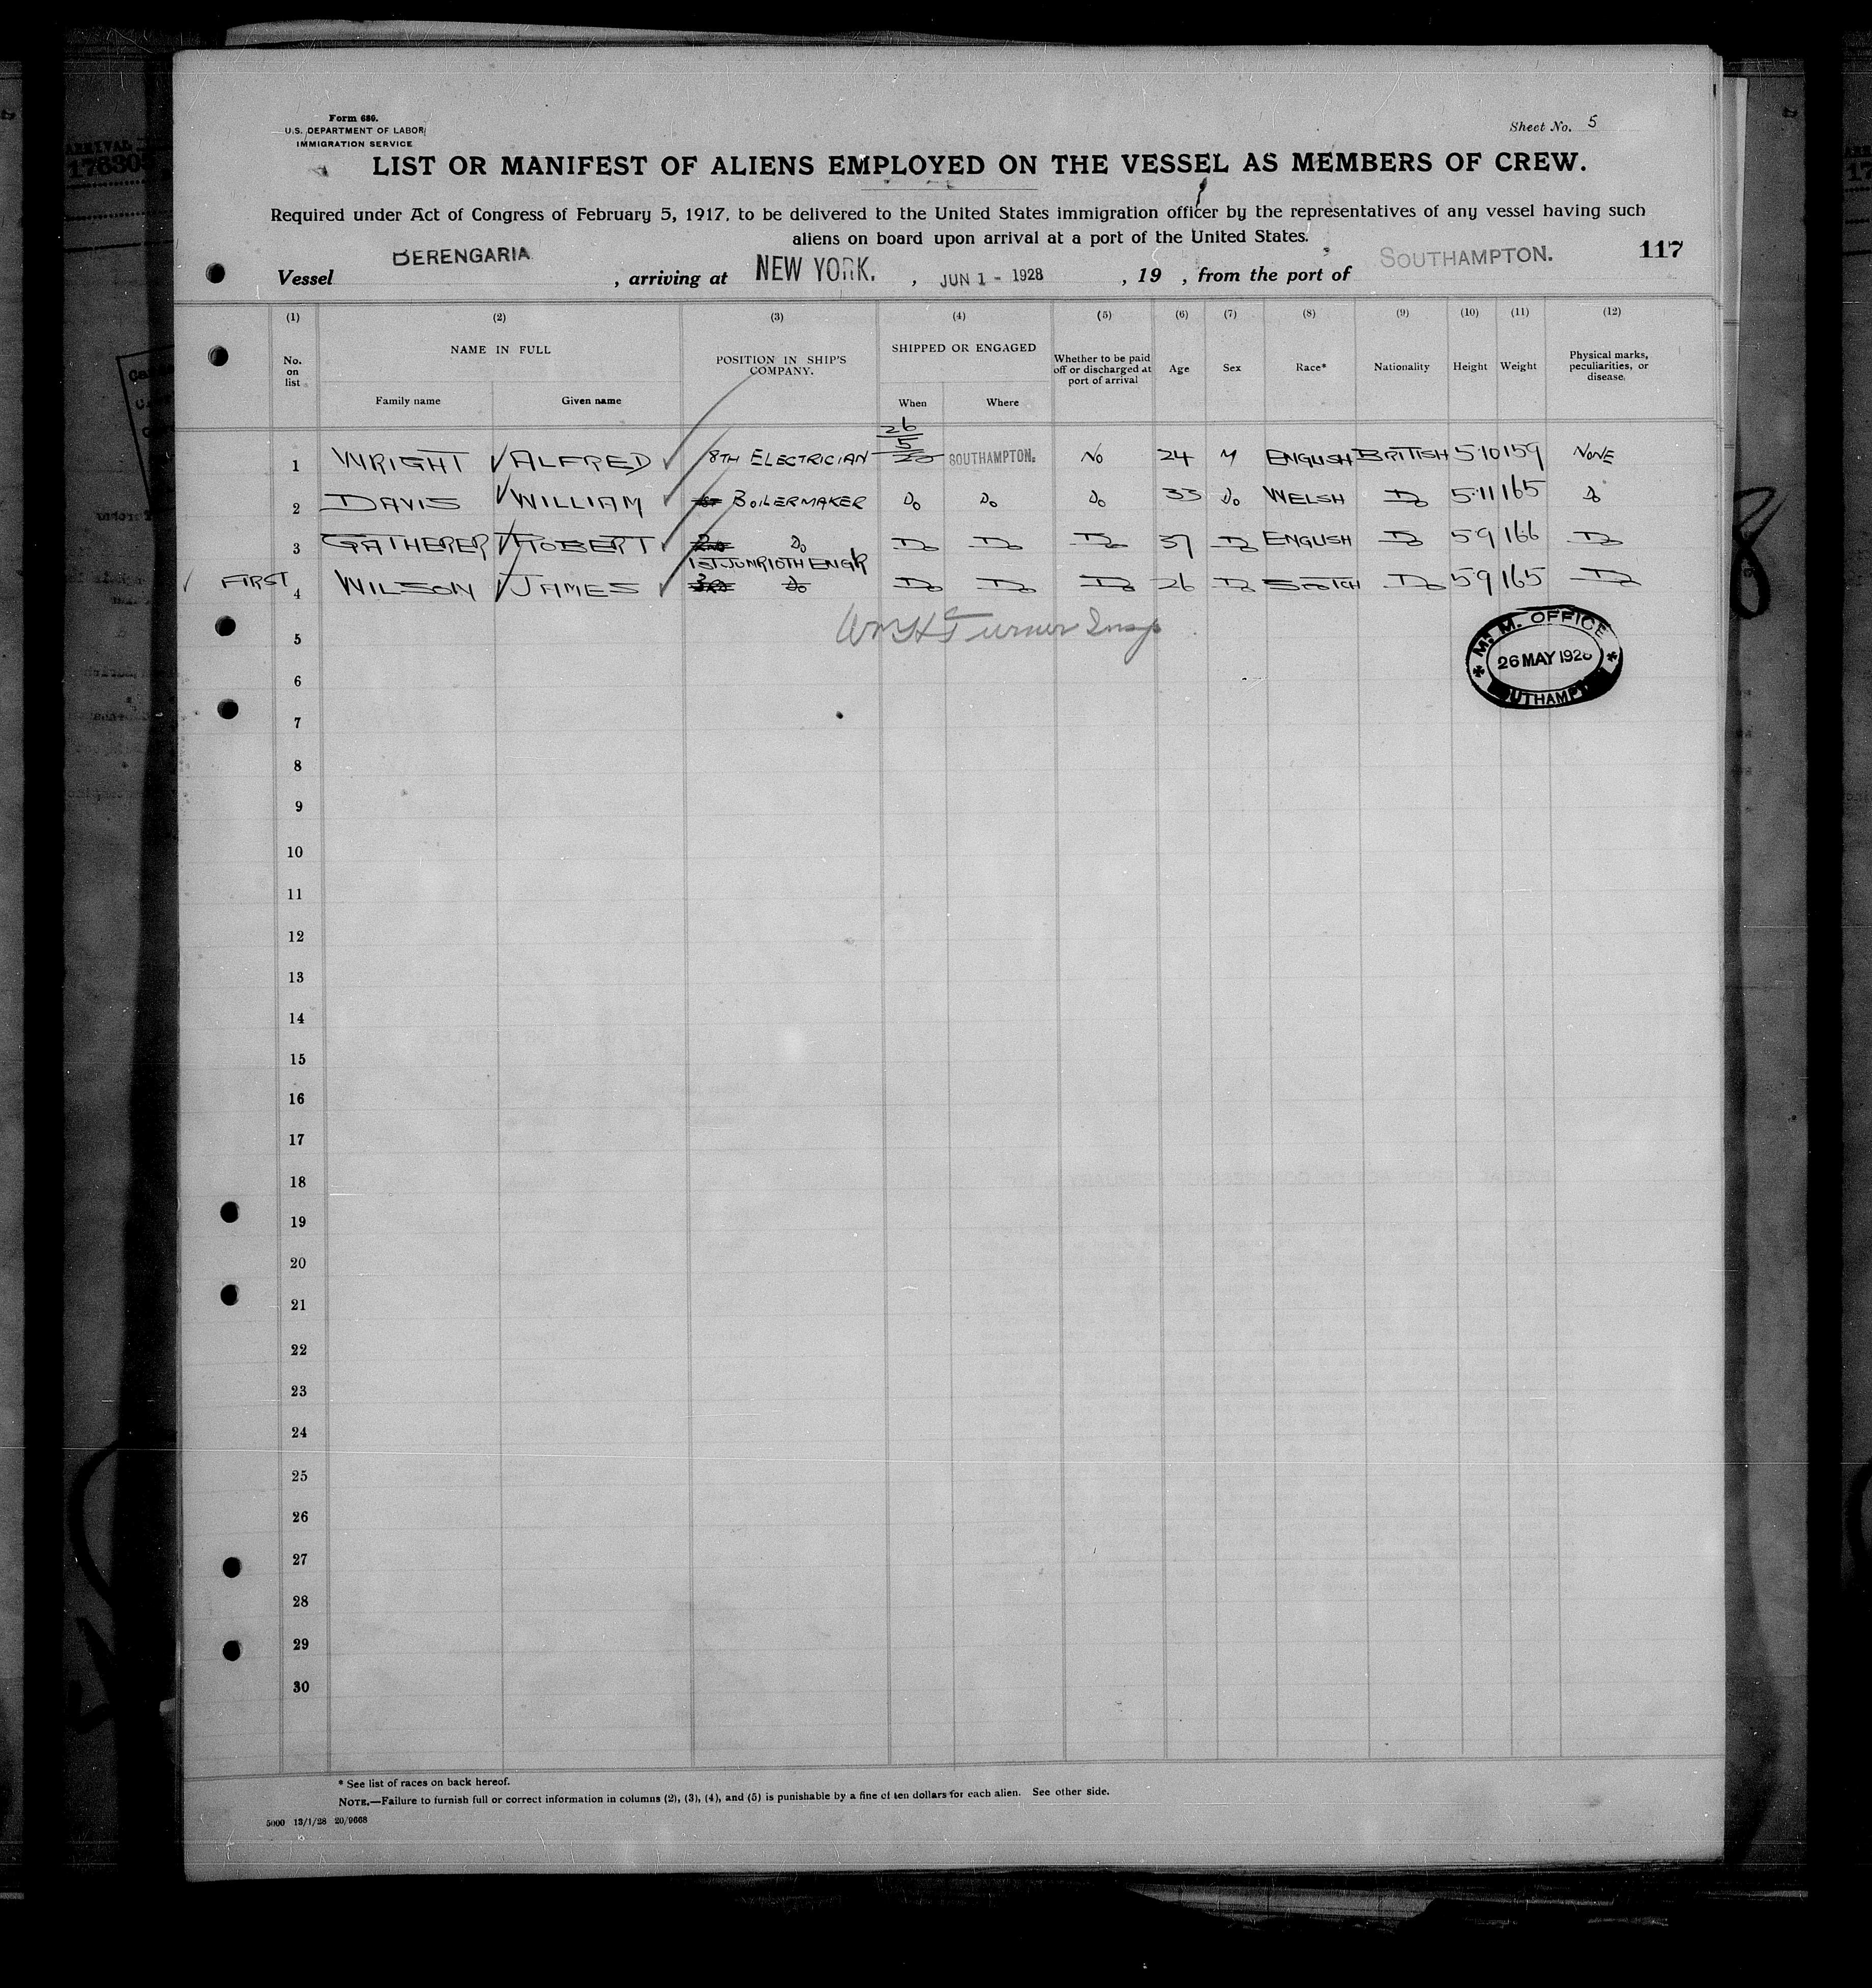 Form 680.
U.S. DEPARTMENT OF LABOR
IMMIGRATION SERVICE
Sheet No. 5
LIST OR MANIFEST OF ALIENS EMPLOYED ON THE VESSEL AS MEMBERS OF CREW.
Required under Act of Congress of February 5, 1917, to be delivered to the United States immigration officer by the representatives of any vessel having such
aliens on board upon arrival at a port of the United States.
117
Vessel BERENGARIA, arriving at NEW YORK., JUN 1 - 1928, 19 , from the port of SOUTHAMPTON.
(1) (2) (3) (4) (5) (6) (7) (8) (9) (10) (11) (12)
No. on list NAME IN FULL POSITION IN SHIP'S COMPANY. SHIPPED OR ENGAGED Whether to be paid off or discharged at port of arrival Age Sex Race* Nationality Height Weight Physical marks, peculiarities, or disease.
Family name Given name When Where
1 WRIGHT ALFRED 8TH ELECTRICIAN 26/5 SOUTHAMPTON. NO 24 M ENGLISH BRITISH 5·10 159 NONE
2 DAVIS WILLIAM BOILERMAKER Do Do Do 33 Do WELSH Do 5·11 165 Do
3 GATHERER ROBERT 2ND Do Do Do Do 37 Do ENGLISH Do 5 9 166 Do
1ST JUNR 10TH ENGR
FIRST 4 WILSON JAMES 3RD Do Do Do Do 26 Do SCOTCH Do 5 9 165 Do
Wm H Turner Insp
5
M. M. OFFICE
26 MAY 1928
SOUTHAMPTON
6
7
8
9
10
11
12
13
14
15
16
17
18
19
20
21
22
23
24
25
26
27
28
29
30
* See list of races on back hereof.
NOTE.—Failure to furnish full or correct information in columns (2), (3), (4), and (5) is punishable by a fine of ten dollars for each alien. See other side.
5000 13/1/28 20/9668